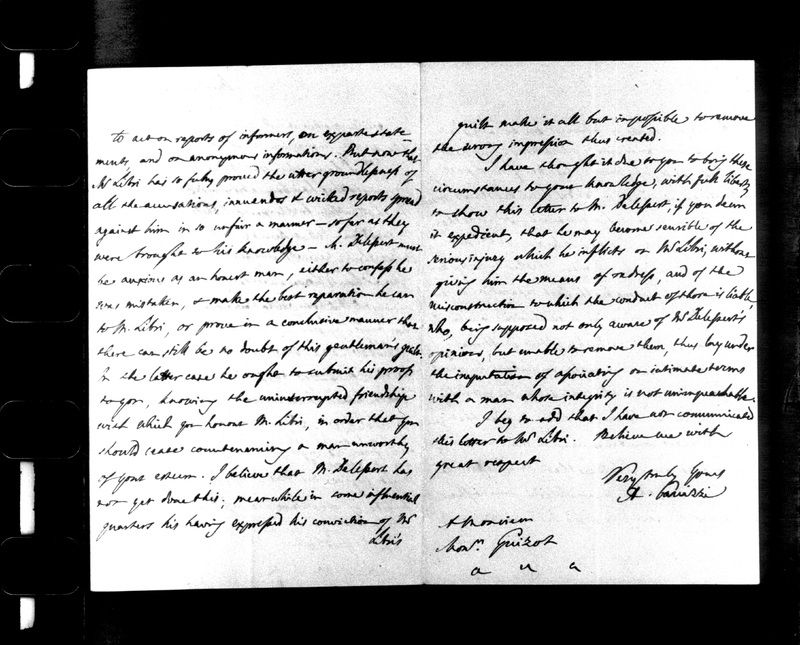 to act on reports of informers, on exparte state
ments, and on anonymous informations. But now that
Mr Libri has so fully proved the utter groundlessness of
all the accusations, inuendos & wicked reports spread
against him in so unfair a manner – so far as they
were brought to his knowledge – M. Delessert must
be anxious as an honest man, either to confess he
was mistaken, & make the best reparation he can
to M. Libri, or prove in a conclusive manner that
there can still be no doubt of this gentleman's guilt.
In the latter case he ought to submit his proofs
to you, knowing the uninterrupted friendship
with which you honour M. Libri, in order that you
should cease countenancing a man unworthy
of your esteem. I believe that M. Delessert has
not yet done this; meanwhile in some influential
quarters his having expressed his conviction of Mr
Libri's
guilt make it all but impossible to remove
the wrong impression thus created.
I have thought it due to you to bring these
circumstances to your knowledge, with full liberty
to show this letter to M. Delessert, if you deem
it expedient, that he may become sensible of the
serious injury which he inflicts on Mr Libri, without
giving him the means of redress, and of the
misconstruction to which the conduct of those is liable
who, being supposed not only aware of Mr Delessert's
opinions, but unable to remove them, thus lay under
the imputation of associating on intimate terms
with a man whose integrity is not unimpeachable.
I beg to add that I have not communicated
this letter to Mr Libri. Believe me with
great respect
Very truly Yours
A. Panizzi
A Monsieur
Monsr. Guizot
a u a